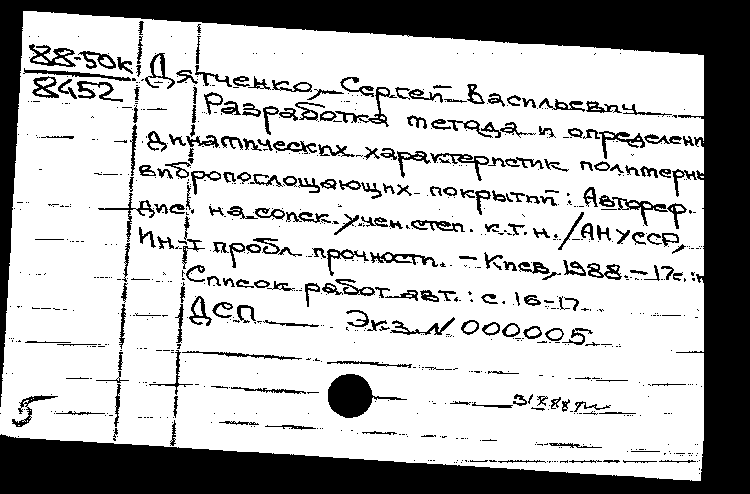 88-50к
8452
Дятченко, Сергей Васильевич
Разработка метода и определени
динамических характеристик полимерны
вибропоглощающих покрытий: Автореф.
дис. на соиск. учен. степ. к.т.н. / АН УССР,
Ин-т пробл. прочности. - Киев, 1988. - 17с.:
Список работ авт.: с. 16-17.
ДСП Экз. N 000005.
5